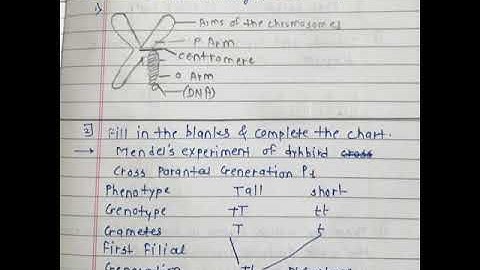 1)
Arms of the chromosomes
P Arm
centromere
Q Arm
(DNA)
2] Fill in the blanks & complete the chart.
→ Mendel's experiment of dyhbird cross
Cross Parantal Generation P1
Phenotype Tall short
Genotype tT tt
Gametes T t
First Filial
Generation